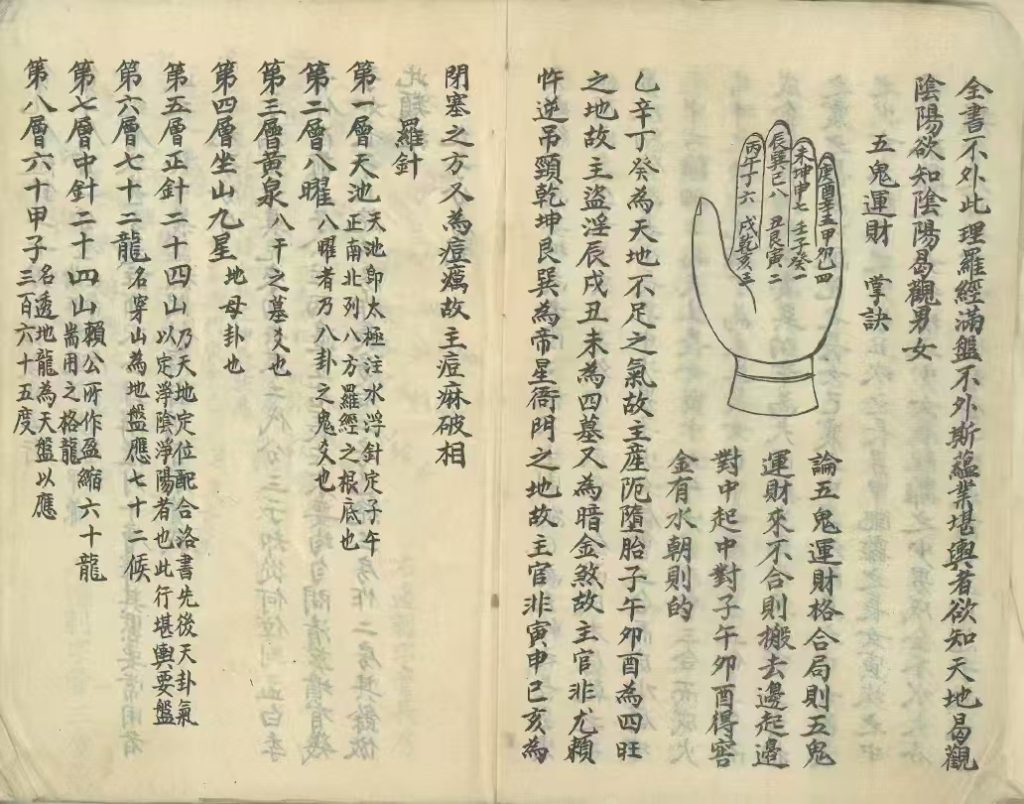 全書不外此理羅經滿盤不外斯蘊業堪輿者欲知天地曷觀
陰陽欲知陰陽曷觀男女
五鬼運財 掌訣
庚酉辛五甲卯乙四
未坤申七壬子癸一
辰巽巳八 丑艮寅二
丙午丁六 戌乾亥三
論五鬼運財格合局則五鬼
運財來不合則搬去邊起邊
對中起中對子午卯酉得窖
金有水朝則的
乙辛丁癸為天地不足之氣故主產阨墮胎子午卯酉為四旺
之地故主盜淫辰戌丑未為四墓又為暗金煞故主官非尤賴
忤逆吊頸乾坤艮巽為帝星衙門之地故主官非寅申巳亥為
閉塞之方又為痘癘故主痘痳破相
羅針
第一層天池 天池即太極注水浮針定子午
正南北列八方羅經之根底也
第二層八曜 八曜者乃八卦之鬼爻也
第三層黃泉 八干之墓爻也
第四層坐山九星 地母卦也
第五層正針二十四山 乃天地定位配合洛書先後天卦氣
以定淨陰淨陽者也此行堪輿要盤
第六層七十二龍 名穿山為地盤應七十二候
第七層中針二十四山 賴公所作盈縮六十龍
耑用之格龍
第八層六十甲子 名透地龍為天盤以應
三百六十五度